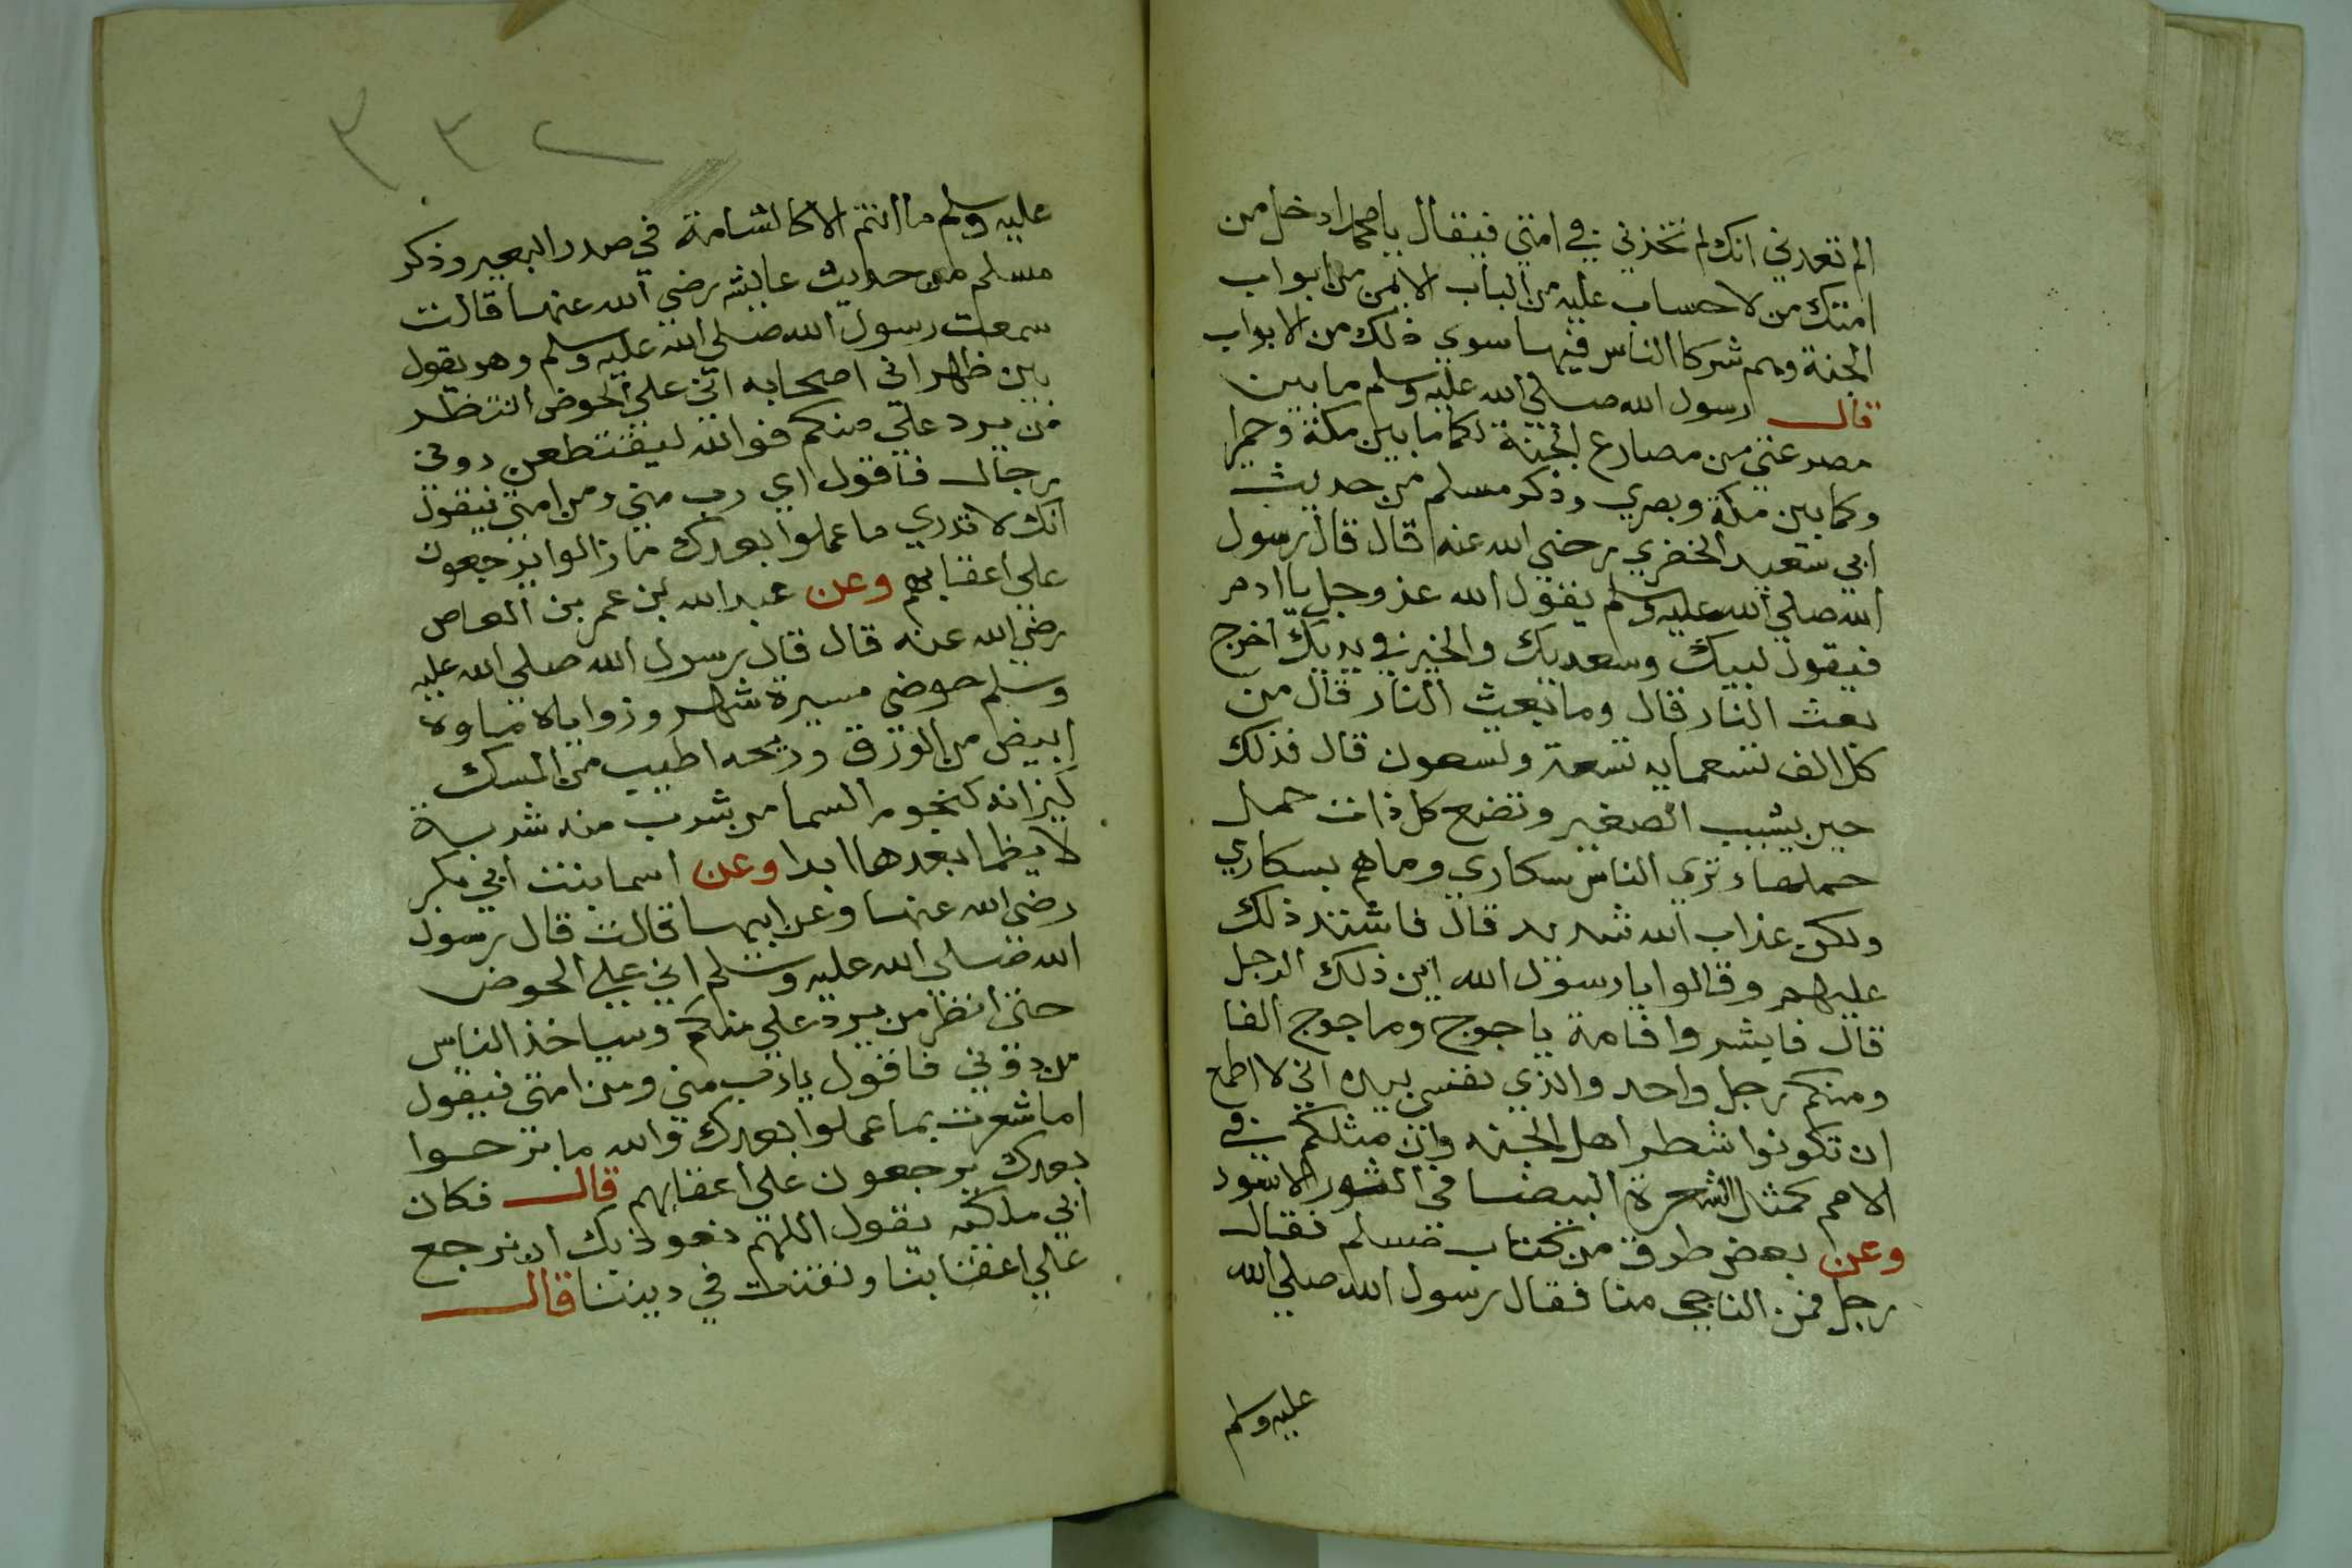 الم تعدني انك لم تخذني في امتي فيقال يا محمد ادخل من
امتك من لا حساب عليه من الباب الايمن من ابواب
الجنة وهم شركا الناس فيها سوي ذلك من الابواب
قال رسول الله صلي الله عليه وسلم ما بين
مصرعتي من مصارع الجنة لكما ما بين مكة وحمرا
وكما بين مكة وبصري وذكر مسلم من حديث
ابي سعيد الخضري رضي الله عنه قال قال رسول
الله صلي الله عليه وسلم يقول الله عز وجل يا ادم
فيقول لبيك وسعديك والخير في يديك اخرج
بعث النار قال وما بعث النار قال من
كل الف تسعمايه تسعة وتسعون قال فذلك
حين يشيب الصغير وتضع كل ذات حمل
حملها وتري الناس سكاري وما هم بسكاري
ولكن عذاب الله شديد قال فاشتد ذلك
عليهم وقالوا يا رسول الله اين ذلك الرجل
قال فابشروا فامة ياجوج وماجوج الفا
ومنكم رجل واحد والذي نفسي بيده اني لا اطمع
ان تكونوا شطر اهل الجنه وان مثلكم في
الامم كمثل الشعرة البيضا في الثور الاسود
وعن بعض طرق من كتاب مسلم فقال
رجل فمن الناجي منا فقال رسول الله صلي الله
عليه وسلم
٣٣٢
عليه وسلم ما انتم الا كالشامة في صدر البعير وذكر
مسلم من حديث عايشه رضي الله عنها قالت
سمعت رسول الله صلي الله عليه وسلم وهو يقول
بين ظهراني اصحابه اني علي الحوض انتظر
من يرد علي منكم فوالله ليقتطعن دوني
رجال فاقول اي رب مني ومن امتي فيقول
انك لا تدري ما عملوا بعدك ما زالوا يرجعون
علي اعقابهم وعن عبد الله بن عمر بن العاص
رضي الله عنه قال قال رسول الله صلي الله عليه
وسلم حوضي مسيرة شهر وزواياه ماوه
ابيض من الورق وريحه اطيب من المسك
كيزانه كنجوم السما من شرب منه شربة
لا يظما بعدها ابدا وعن اسما بنت ابي بكر
رضي الله عنها وعن ابيها قالت قال رسول
الله صلي الله عليه وسلم اني علي الحوض
حتي انظر من يرد علي منكم وسياخذ الناس
من دوني فاقول يا رب مني ومن امتي فيقول
اما شعرت بما عملوا بعدك والله ما برحوا
بعدك يرجعون علي اعقابهم قال فكان
ابي ملكة يقول اللهم نعوذ بك ان نرجع
علي اعقابنا ونفتن في ديننا قال